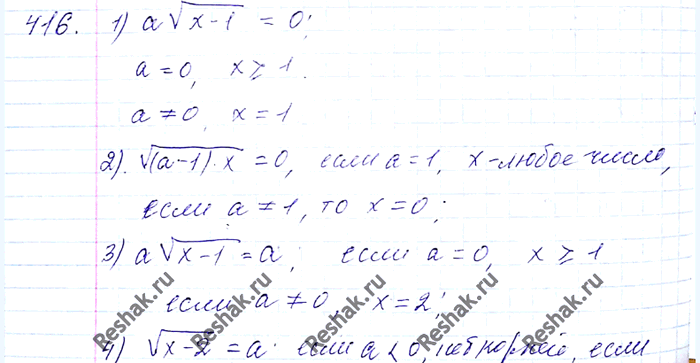 416. 1) a√x-1 = 0;
a=0, x ≥ 1.
a ≠ 0, x = 1
2). √(a-1)·x = 0, если a=1, x-любое число,
если a ≠ 1, то x=0;
3) a√x-1 = a; если a=0, x ≥ 1
если a ≠ 0, x=2;
4) √x-2 = a· если a < 0, нет корней, если
Reshak.ru Reshak.ru Reshak.ru Reshak.ru Reshak.ru Reshak.ru